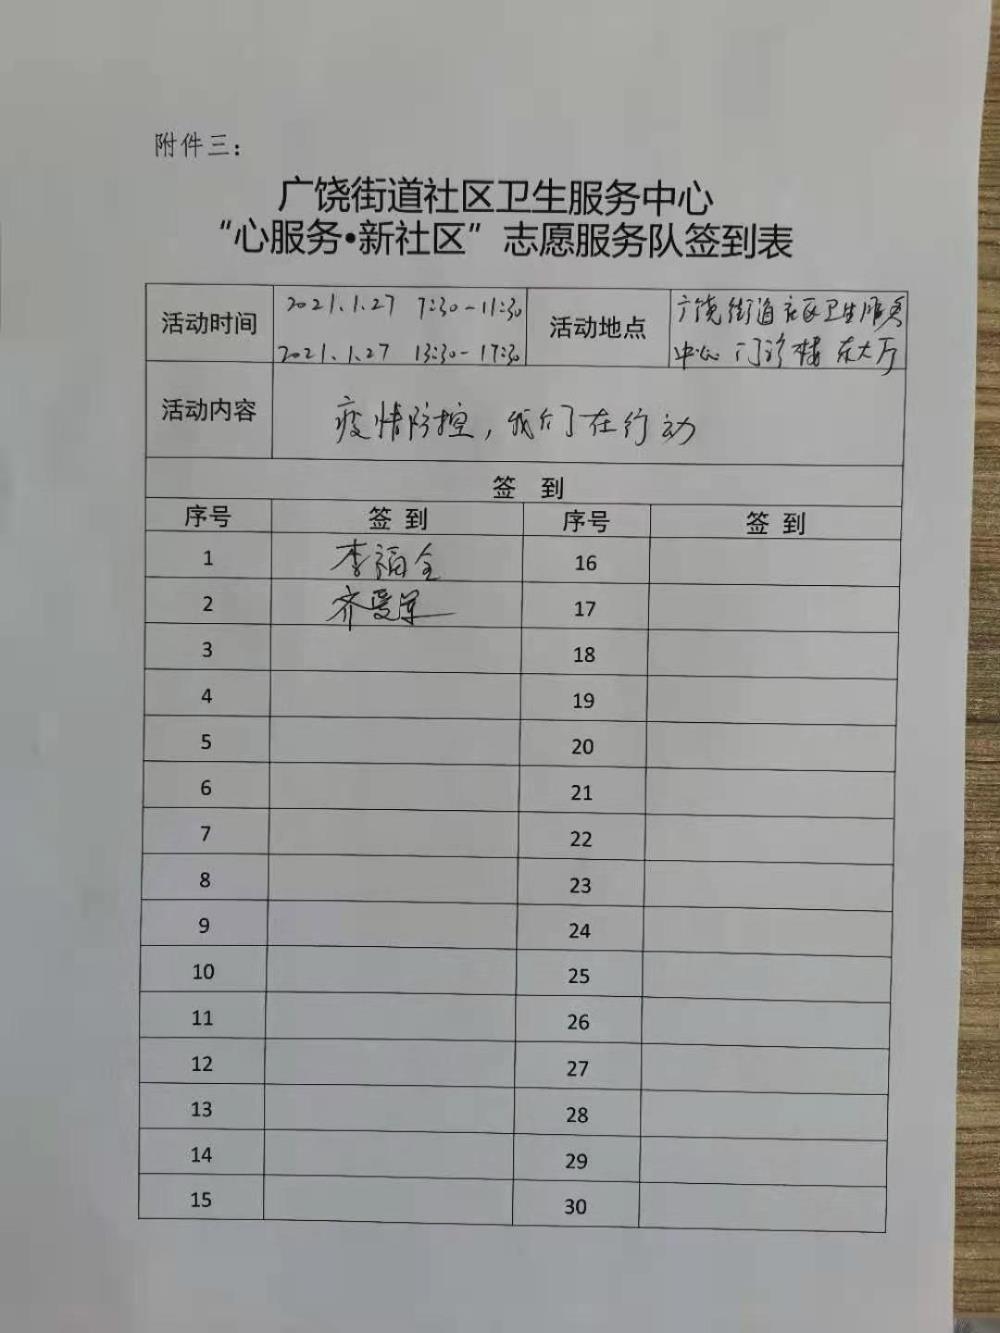 附件三：
广饶街道社区卫生服务中心
“心服务•新社区”志愿服务队签到表
活动时间
2021.1.27 7:30-11:30
2021.1.27 13:30-17:30
活动地点
广饶街道社区卫生服务
中心门诊楼东大厅
活动内容
疫情防控，我们在行动
签 到
序号 签到 序号 签到
1 李福全 16
2 齐爱军 17
3 18
4 19
5 20
6 21
7 22
8 23
9 24
10 25
11 26
12 27
13 28
14 29
15 30